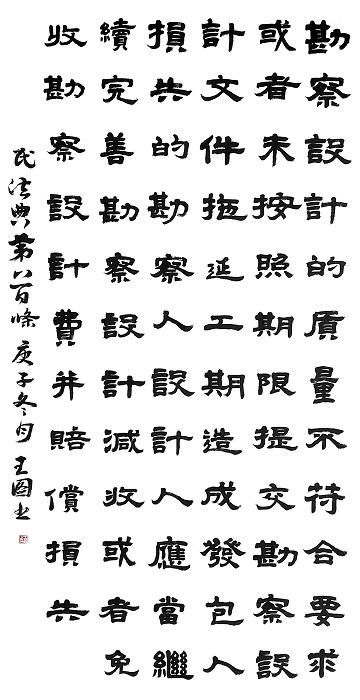 勘察設計的質量不符合要求
或者未按照期限提交勘察設
計文件拖延工期造成發包人
損失的勘察人設計人應當繼
續完善勘察設計減收或者免
收勘察設計費并賠償損失
民法典第八百條 庚子冬旬 王国书